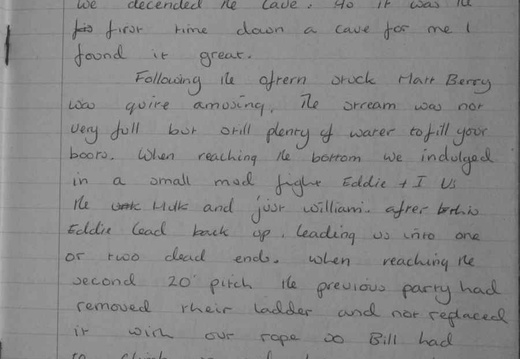 we decended the cave. As it was the
first time down a cave for me I
found it great.
Following the often stuck Matt Berry
was quite amusing. The stream was not
very full but still plenty of water to fill your
boots. When reaching the bottom we indulged
in a small mud fight Eddie + I Vs
the Hulk and just william. after this
Eddie lead back up, leading us into one
or two dead ends. when reaching the
second 20' pitch the previous party had
removed their ladder and not replaced
it with our rope so Bill had
to climb